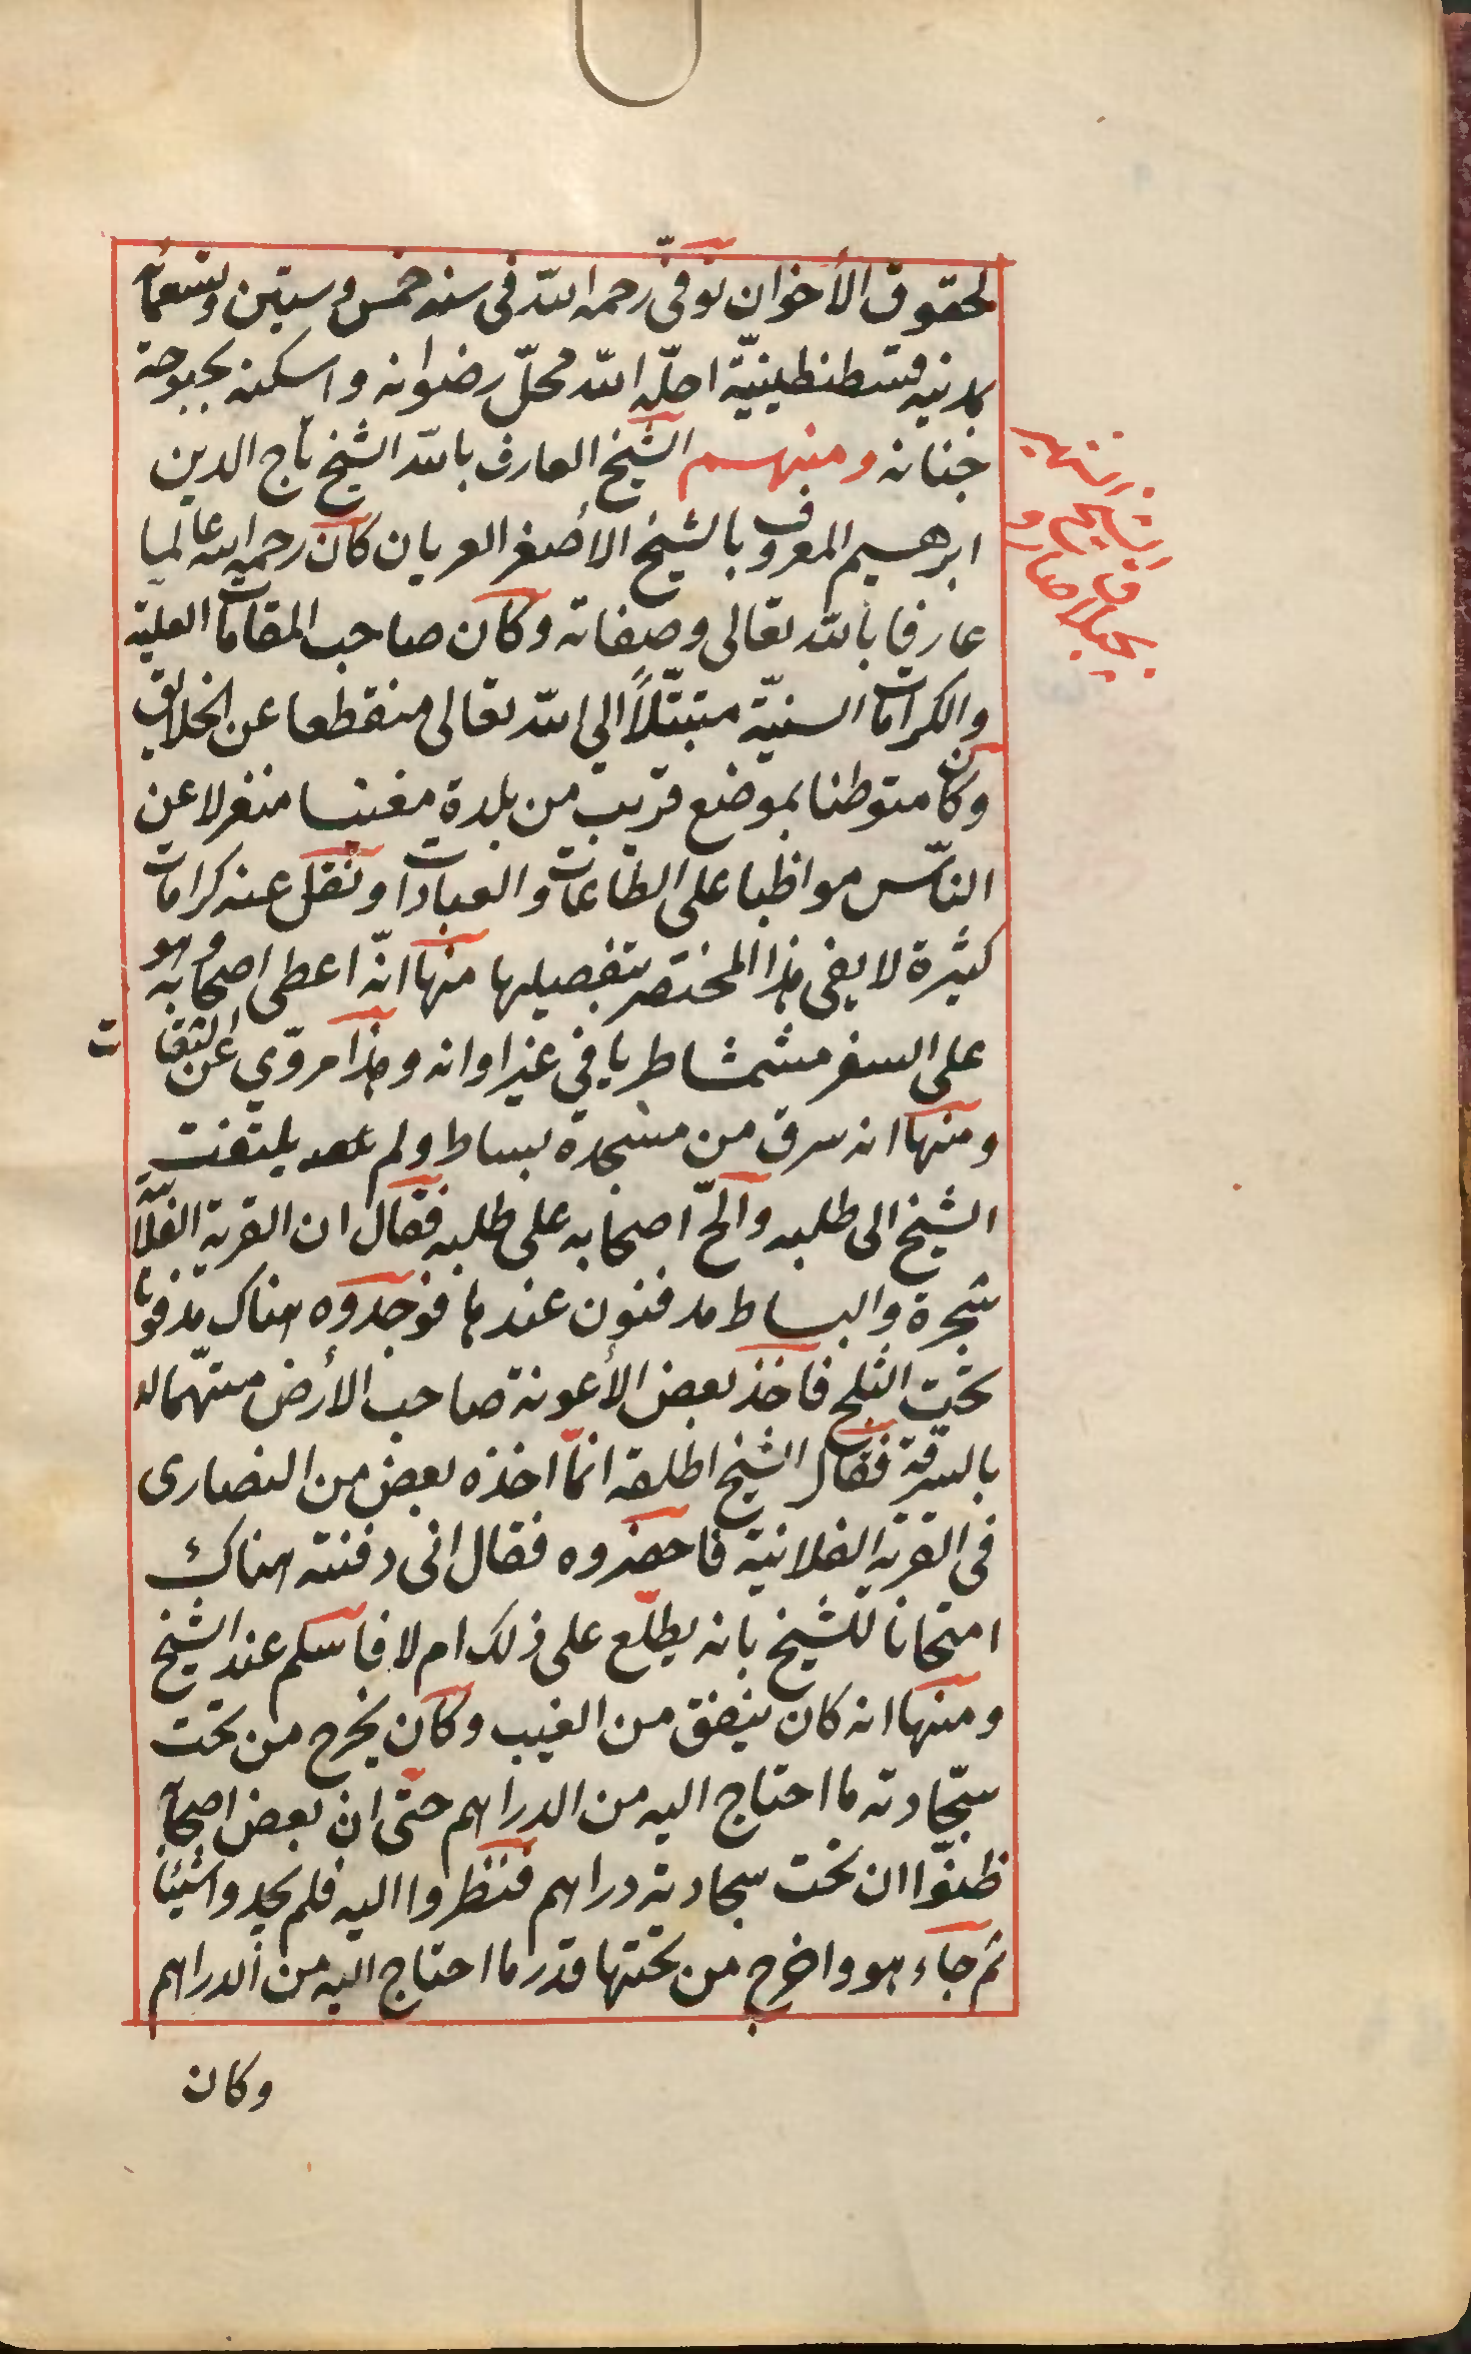 لحقوق الأخوان توفّى رحمه الله فى سنه خمس وستين وتسعمأة
بمدنيه قسطنطينيّة احلّه الله محلّ رضوانه واسكنه بحبوحة
جنانه ومنهم الشيخ العارف بالله الشيخ تاج الدين
ابرهيم المعروف بالشيخ الأصغر العريان كان رحمه الله عالميا
عارفا بالله تعالى وصفاته وكان صاحب المقامات العليّة
والكرامات السنيّة متبتّلاً الي الله تعالى منقطعا عن الخلايق
وكان متوطنا بموضع قريب من بلدة مغنيسا منغرلا عن
الناّس مواظبا على الطاعات والعبادات ونقل عنه كرامات
كثيرة لا يفى هذا المختصر بتفصيلها منها انّه اعطى اصحابه وهو
على السفر مشمشا طريا في غير اوانه وهذا مروّي عن الثقات
ومنها انه سرق من مسجده بساط ولم يلتفت
الشيخ الى طلبه وألحّ اصحابه على طلبه فقال ان القرية الفلانية
شجرة والبساط مدفنون عندها فوجدوه هناك مدفونا
تحت الثلج فاخذ بعض الأعونة صاحب الأرض متهّما له
بالسرقة فقال الشيخ اطلقه انمّا اخذه بعض من النصارى
فى القرية الفلانية فاحضروه فقال انى دفنته هناك
امتحانا للشيخ بانه يطلّع على ذلك ام لا فاسلم عند الشيخ
ومنها انه كان ينفق من الغيب وكان يخرج من تحت
سجّادته ما احتاج اليه من الدراهم حتّى ان بعض اصحابه
ظنوّا ان تحت سجادته دراهم فنظروا اليه فلم يجدوا شيئا
ثم جاء هو واخرج من تحتها قدر ما احتاج اليه من الدراهم
وكان
الشيخ